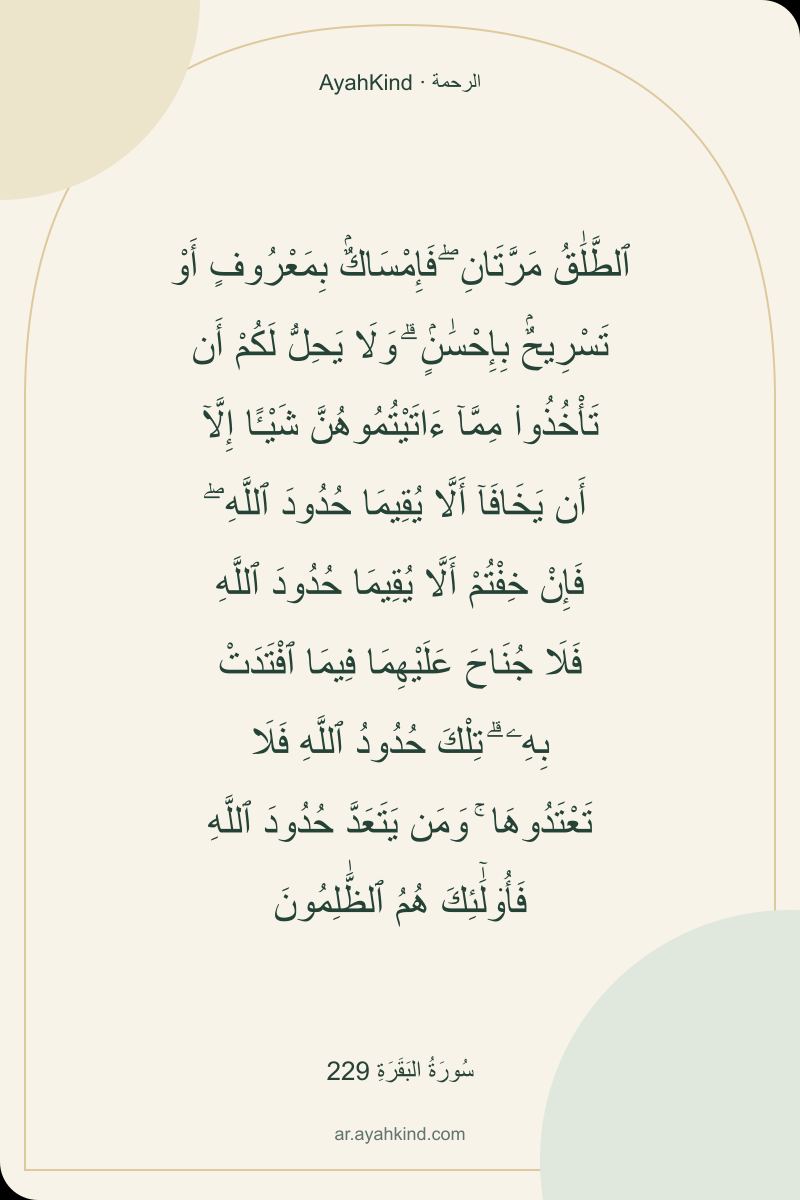 AyahKind · الرحمة
ٱلطَّلَٰقُ مَرَّتَانِ ۖ فَإِمْسَاكٌۢ بِمَعْرُوفٍ أَوْ
تَسْرِيحٌۢ بِإِحْسَٰنٍۢ ۗ وَلَا يَحِلُّ لَكُمْ أَن
تَأْخُذُوا۟ مِمَّآ ءَاتَيْتُمُوهُنَّ شَيْـًٔا إِلَّآ
أَن يَخَافَآ أَلَّا يُقِيمَا حُدُودَ ٱللَّهِ ۖ
فَإِنْ خِفْتُمْ أَلَّا يُقِيمَا حُدُودَ ٱللَّهِ
فَلَا جُنَاحَ عَلَيْهِمَا فِيمَا ٱفْتَدَتْ
بِهِۦ ۗ تِلْكَ حُدُودُ ٱللَّهِ فَلَا
تَعْتَدُوهَا ۚ وَمَن يَتَعَدَّ حُدُودَ ٱللَّهِ
فَأُو۟لَٰٓئِكَ هُمُ ٱلظَّٰلِمُونَ
سُورَةُ البَقَرَةِ 229
ar.ayahkind.com